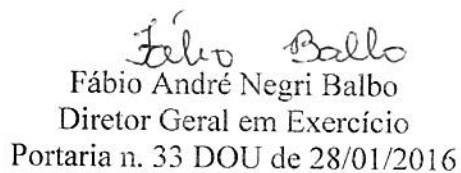 Fábio Balbo
Fábio André Negri Balbo
Diretor Geral em Exercício
Portaria n. 33 DOU de 28/01/2016